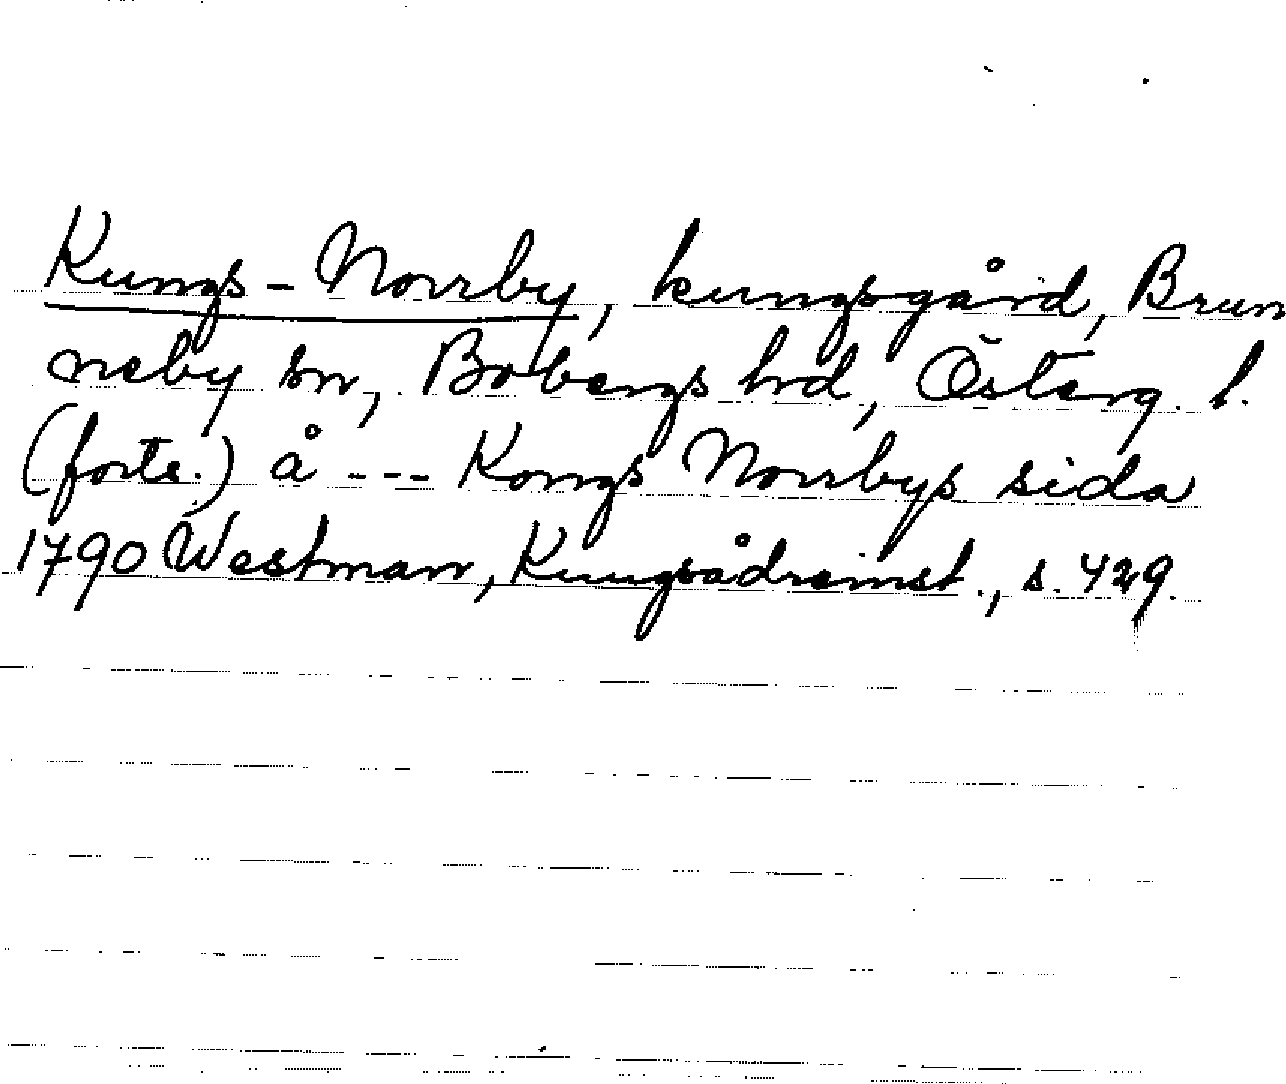 Kungs-Norrby, kungsgård, Brun
neby sn, Bobergs hd, Österg. l.
(forts.) å --- Kongs Norrbys sida
1790 Westman, Kungsådreinst., s. 429.